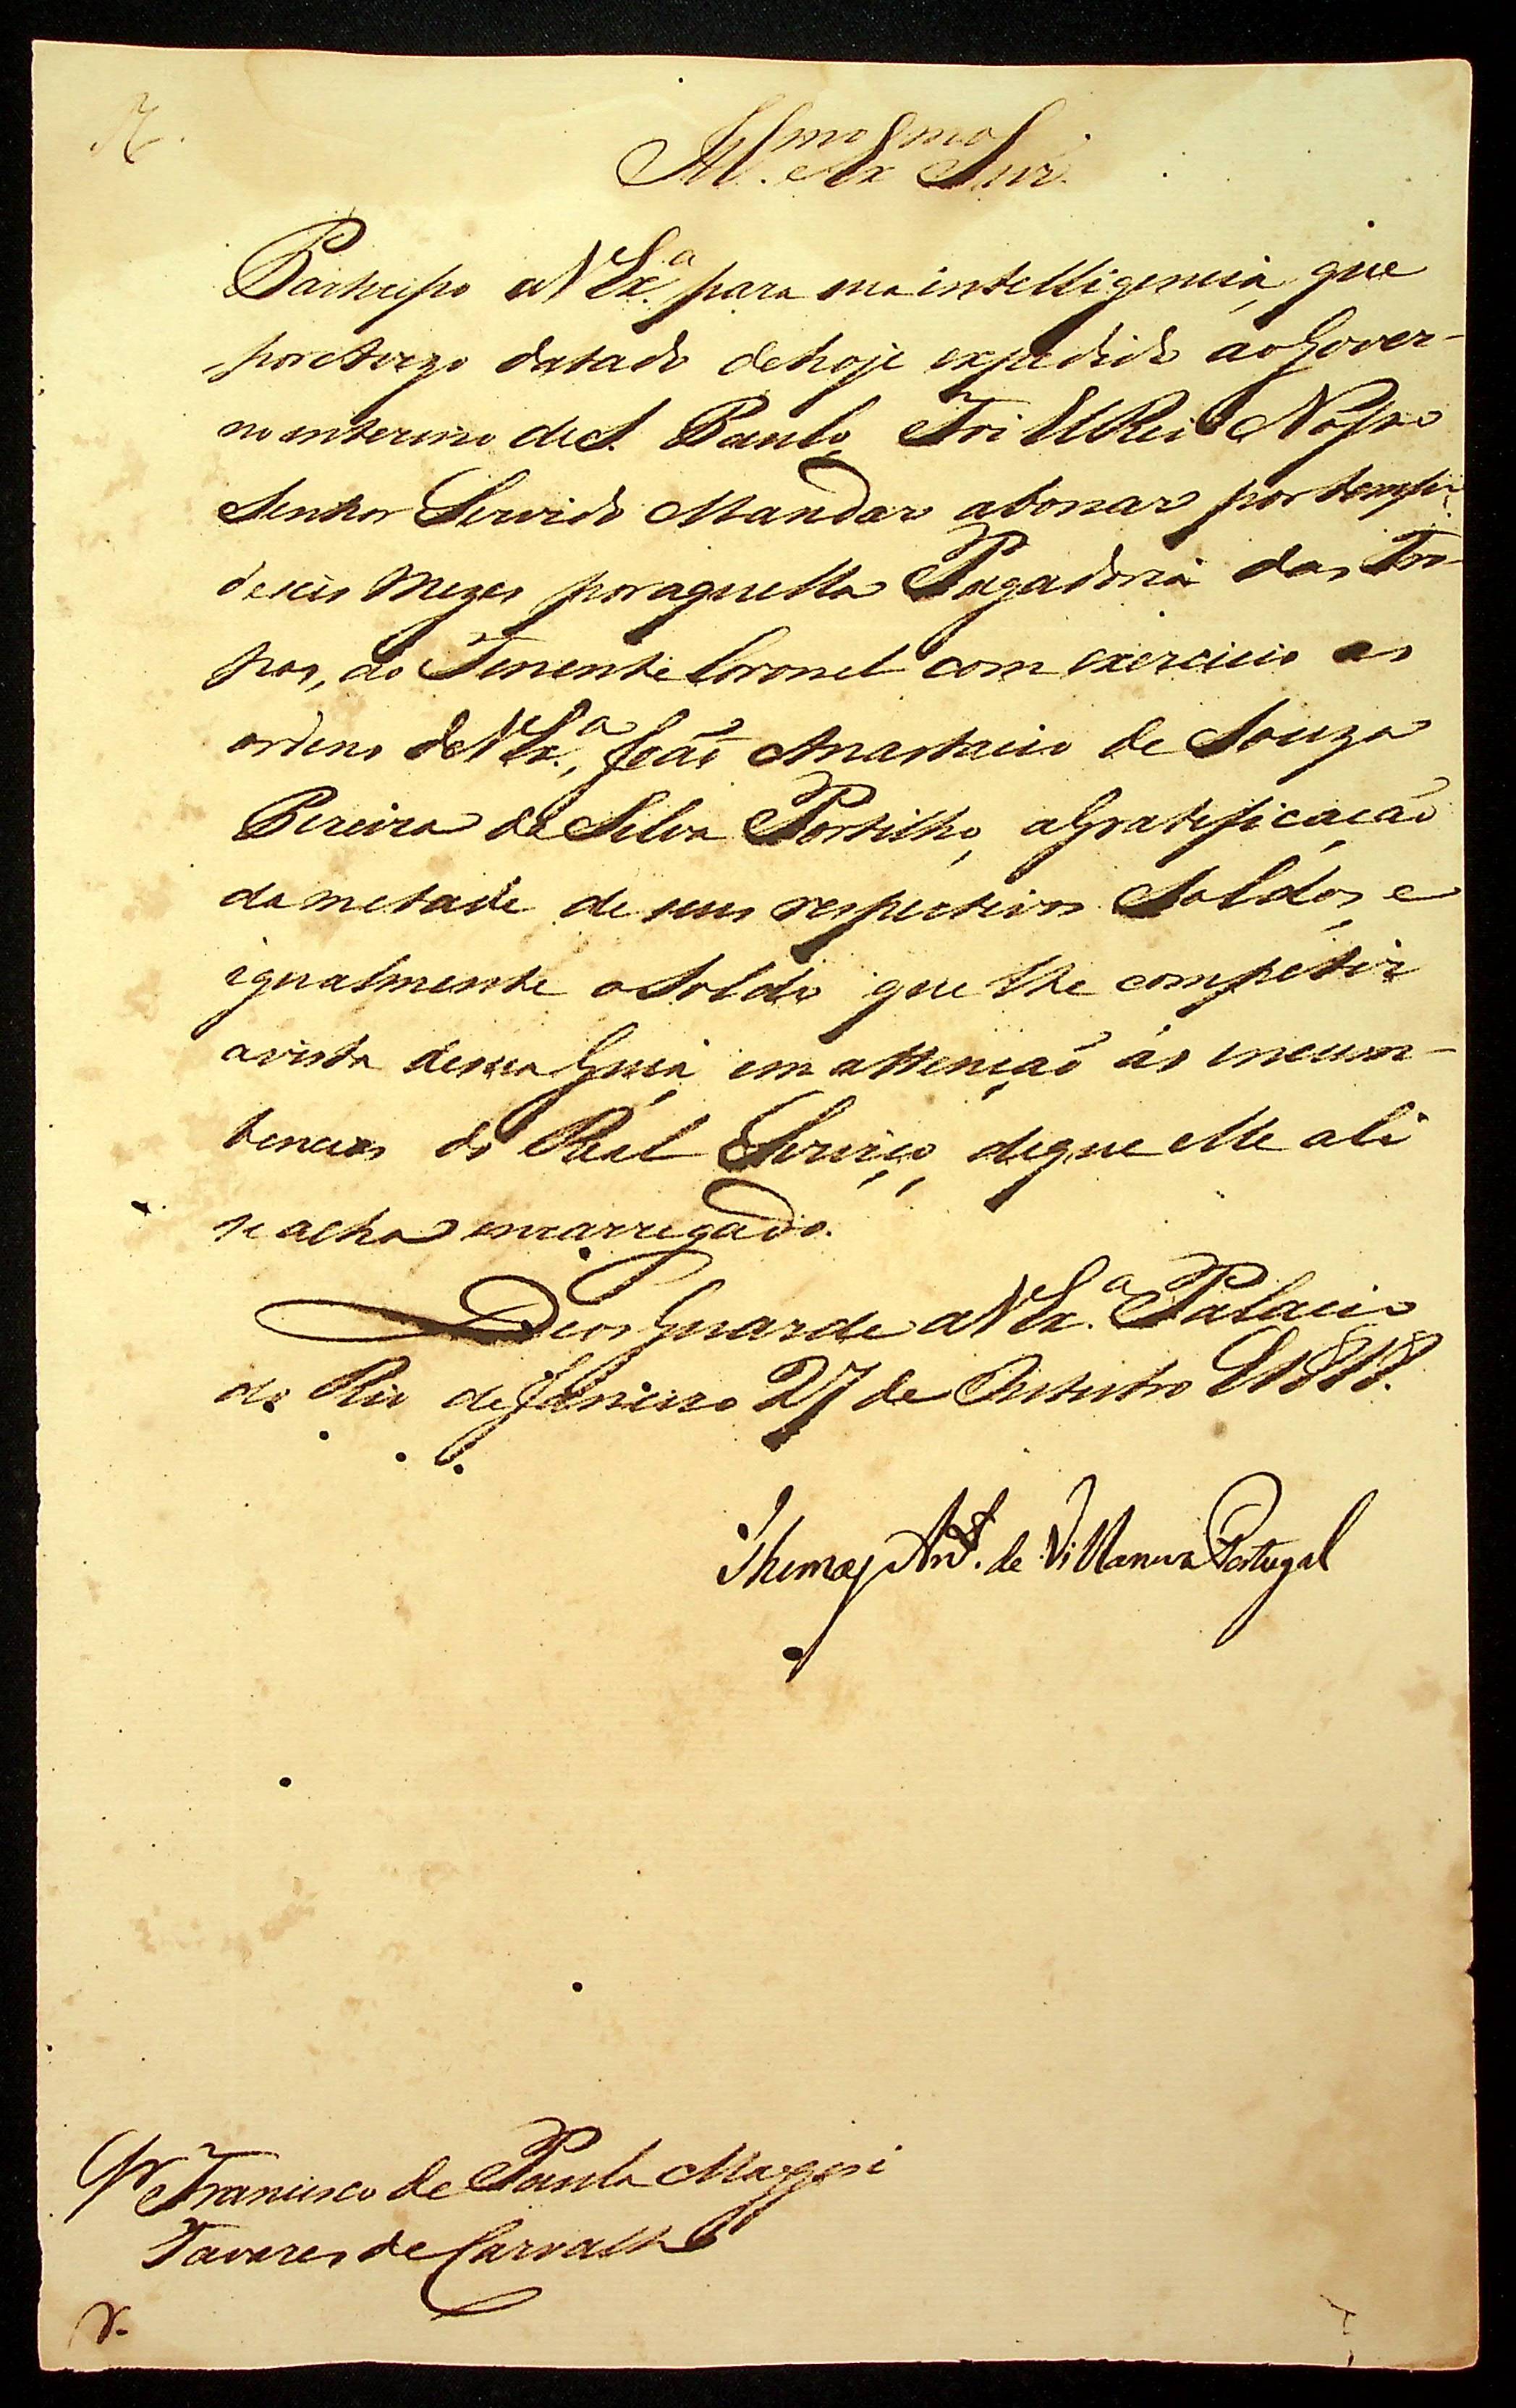 Ill.mo Ex.mo Snr.
Participo a V Ex.a para sua intelligencia, que
por Avizo datado de hoje expedido ao Gover-
no interino de S. Paulo, Foi ElRei Nosso
Senhor Servido Mandar abonar por tempo
de seis Mezes por aquella Pagadoria das Tro-
pas, ao Tenente Coronel com exercicio as
ordens de V Ex.a, João Anastacio de Souza
Pereira da Silva Portilho, a Gratificação
da metade de seus respectivos Soldos, e
igualmente o Soldo que lhe competir
a vista de sua Guia, em attenção ás incum-
bencias do Real Serviço, de que elle ali
se acha encarregado.
Deos Guarde a V Ex.a Palacio
do Rio de Janeiro 27 de Outubro de 1818.
Thomaz Ant.o de Villanova Portugal
Sr. Francisco de Paula Maggesi
Tavares de Carvalho